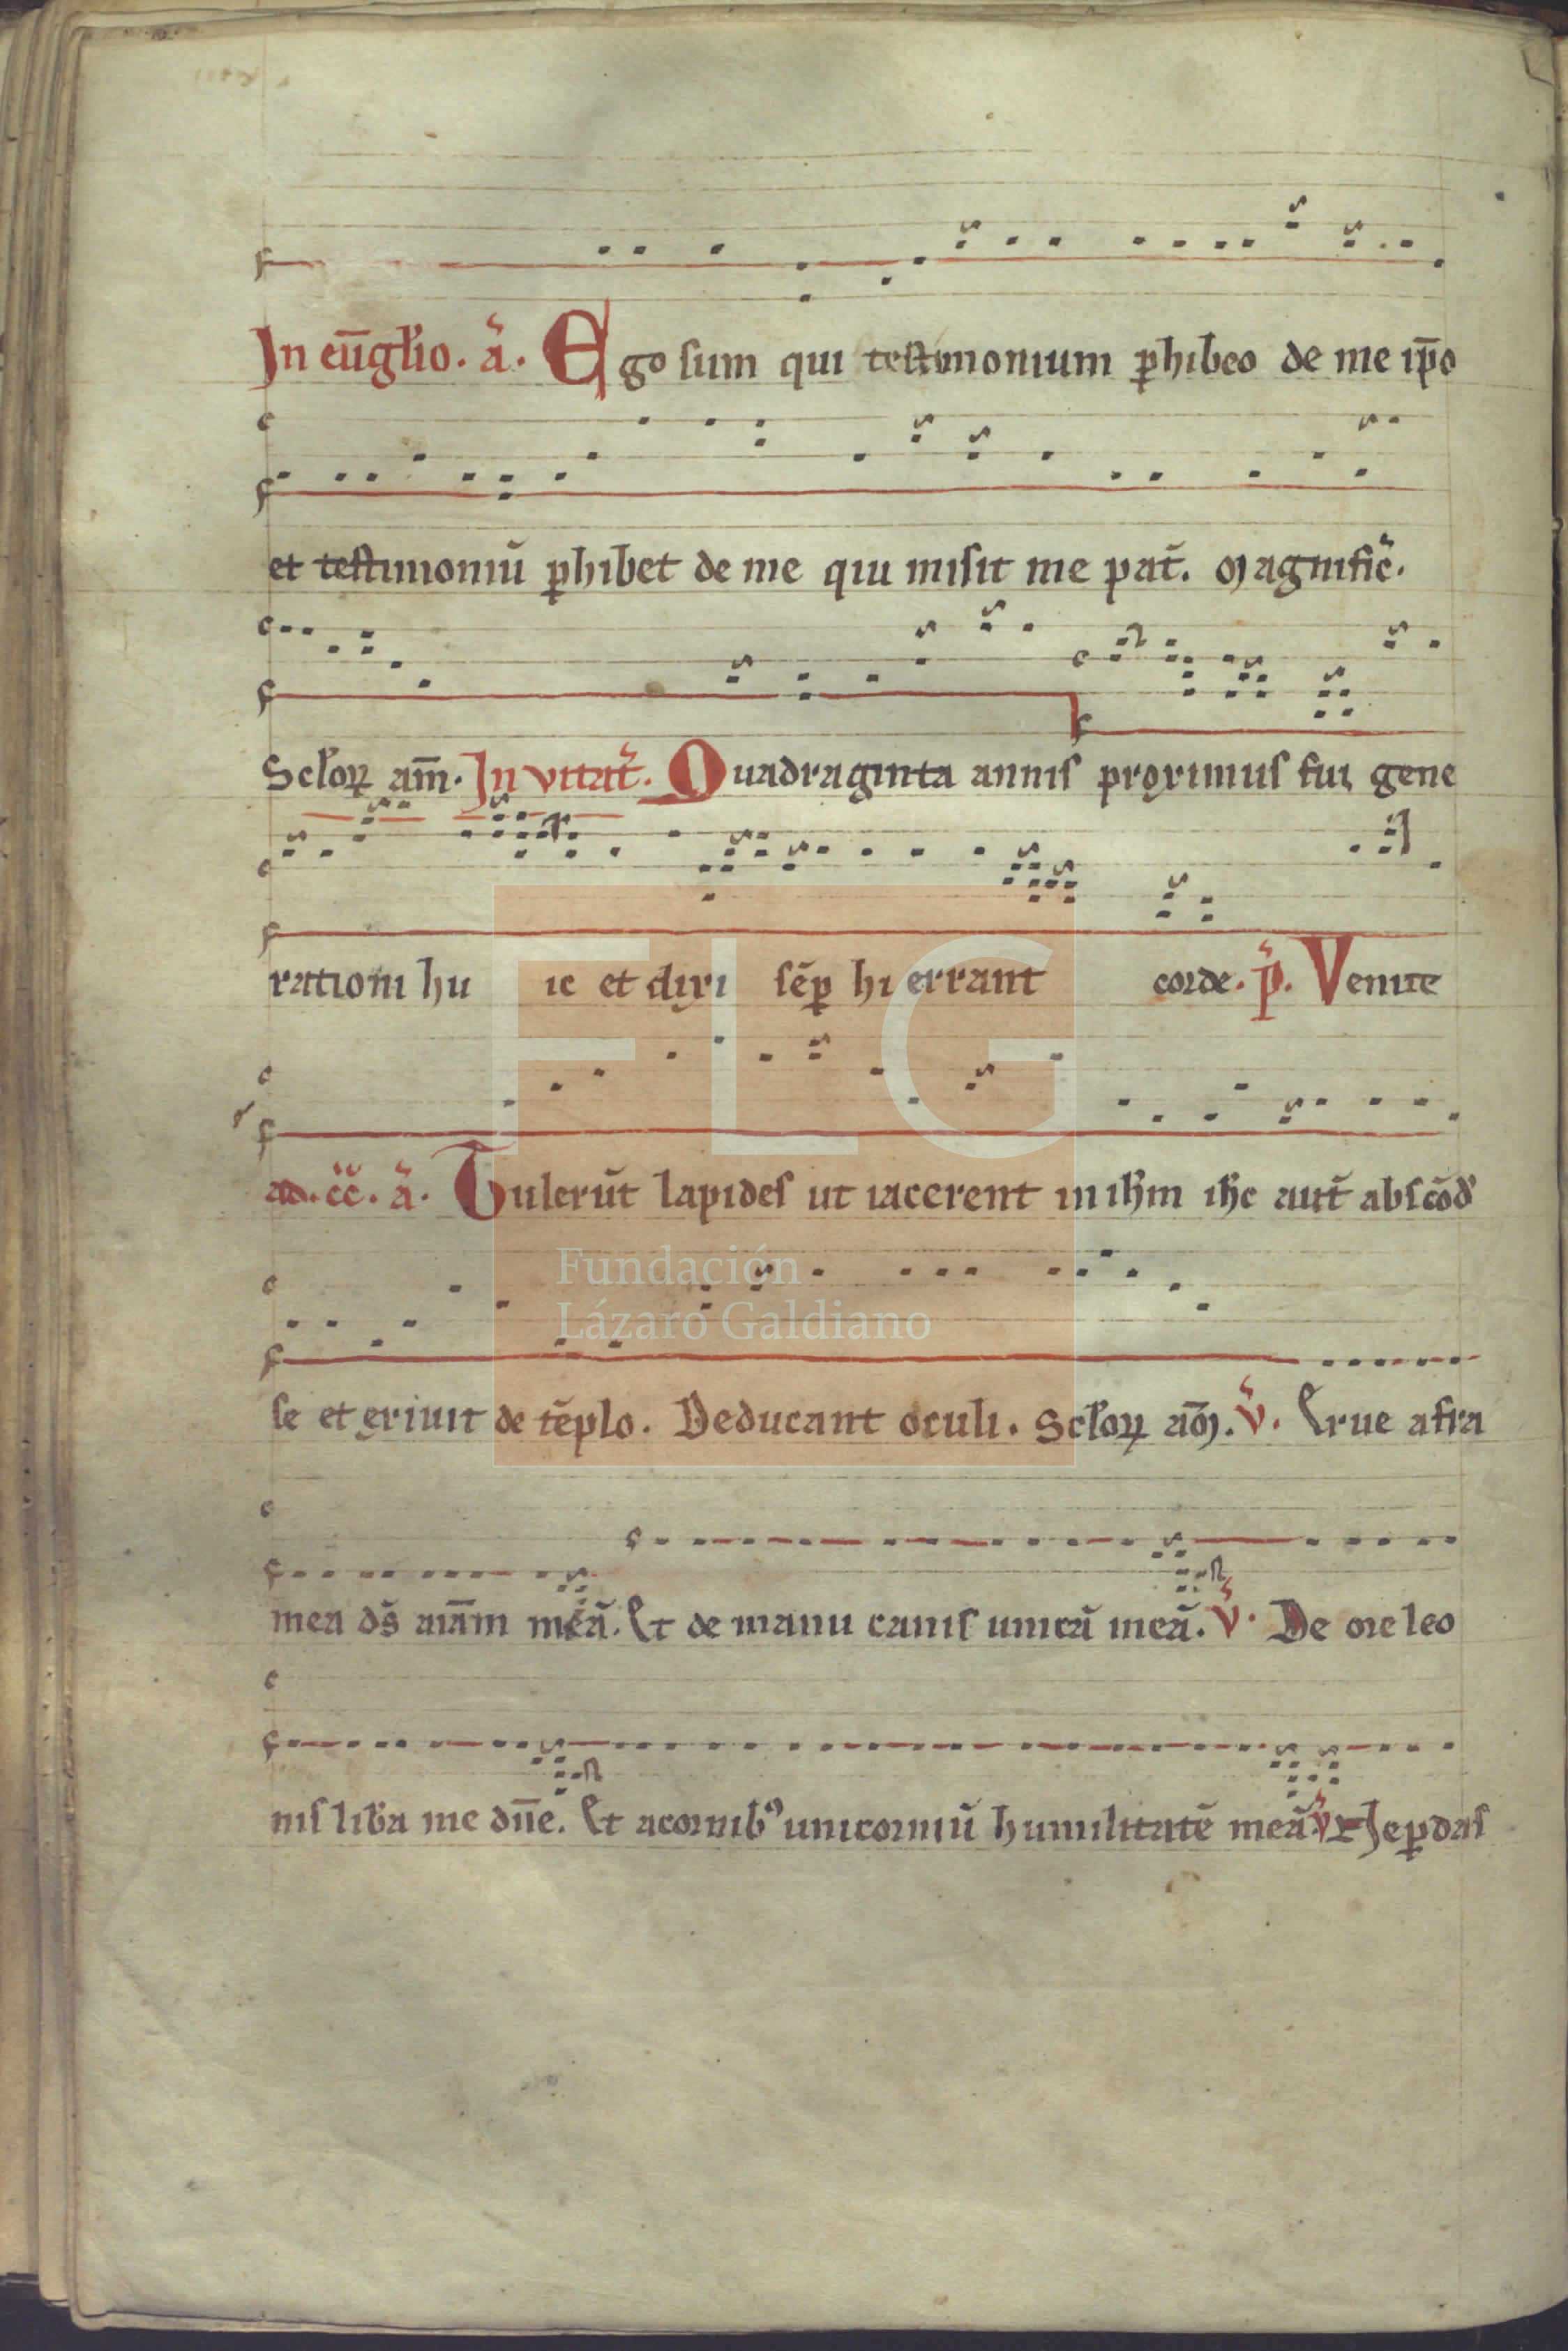 In eu̅gl̅io. a̅. Ego sum qui testimonium ꝑhibeo de me ip̅o
et testimoniu̅ ꝑhibet de me qui misit me pat̅. Magnific̅.
Scl̅oꝝ am̅. Invitat̅. Quadraginta annis proximus fui gene
rationi hu ic et dixi se̅ꝑ hi errant corde. p̅. Venite
ad. cc̅. a̅. Tuleru̅t lapides ut iacerent in ih̅m ih̅c aut̅ absco̅d̅
se et exiuit de te̅plo. Deducant oculi. Scl̅oꝝ am̅. v̅. Erue a fra
mea ds̅ aia̅m mea̅. Et de manu canis unica̅ mea̅. v̅. De ore leo
nis lib̅a me dn̅e. Et a cornibꝰ unicorniu̅ humilitate̅ mea̅. v̅. Ne ꝑdas
FLG
Fundación
Lázaro Galdiano